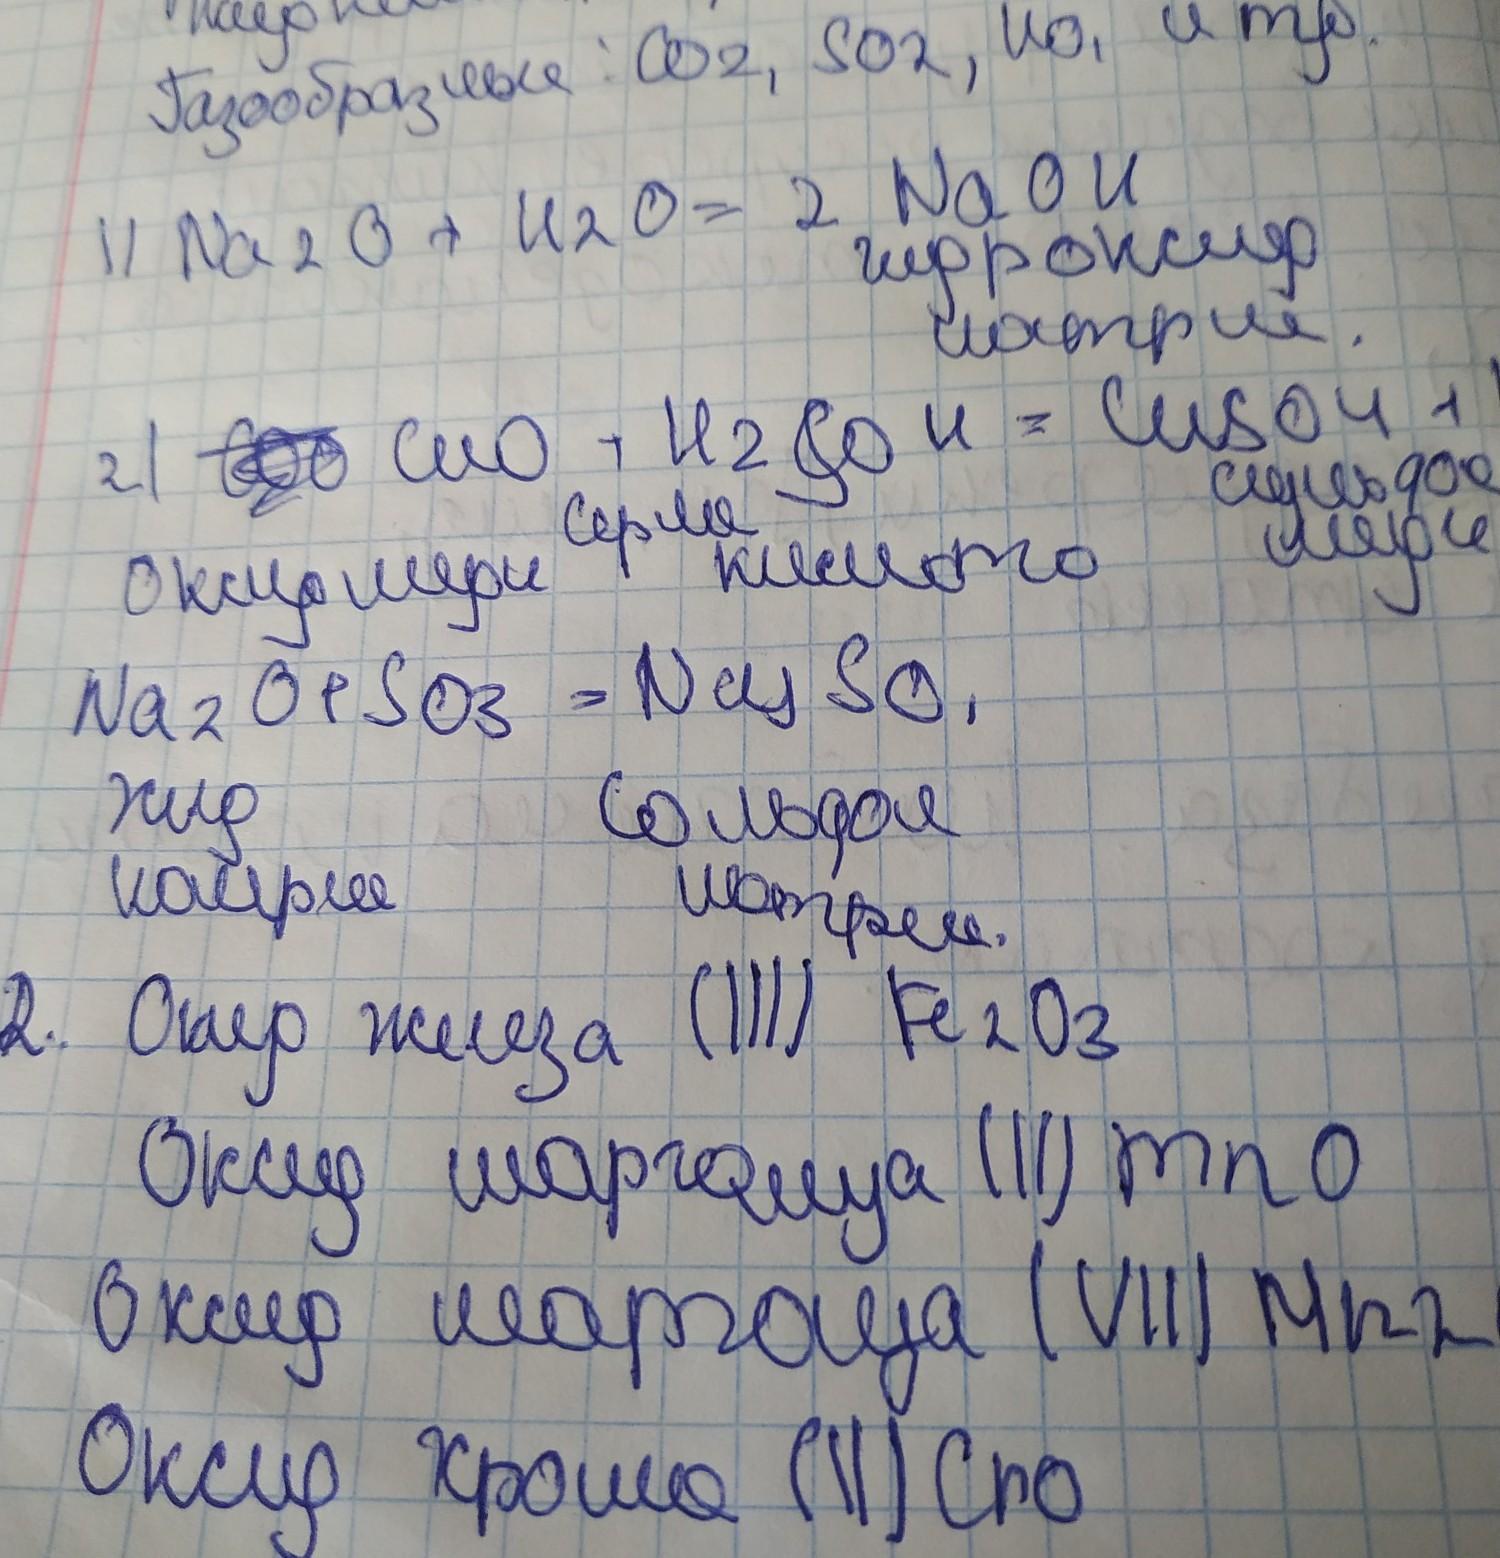 Газообразные: CO2, SO2, NO, и тр.
1) Na2O + H2O = 2 NaOH
гидроксид
натрия.
2) CuO + H2SO4 = CuSO4 +
серная сульфа
Оксид меди кислота меди
Na2O + SO3 = Na2SO,
Сольфоя
натрия.
2. Окид железа (III) Fe2O3
Оксид марганца (II) MnO
Оксид маргоца (VII) Mn2
Оксид хрома (II) CrO